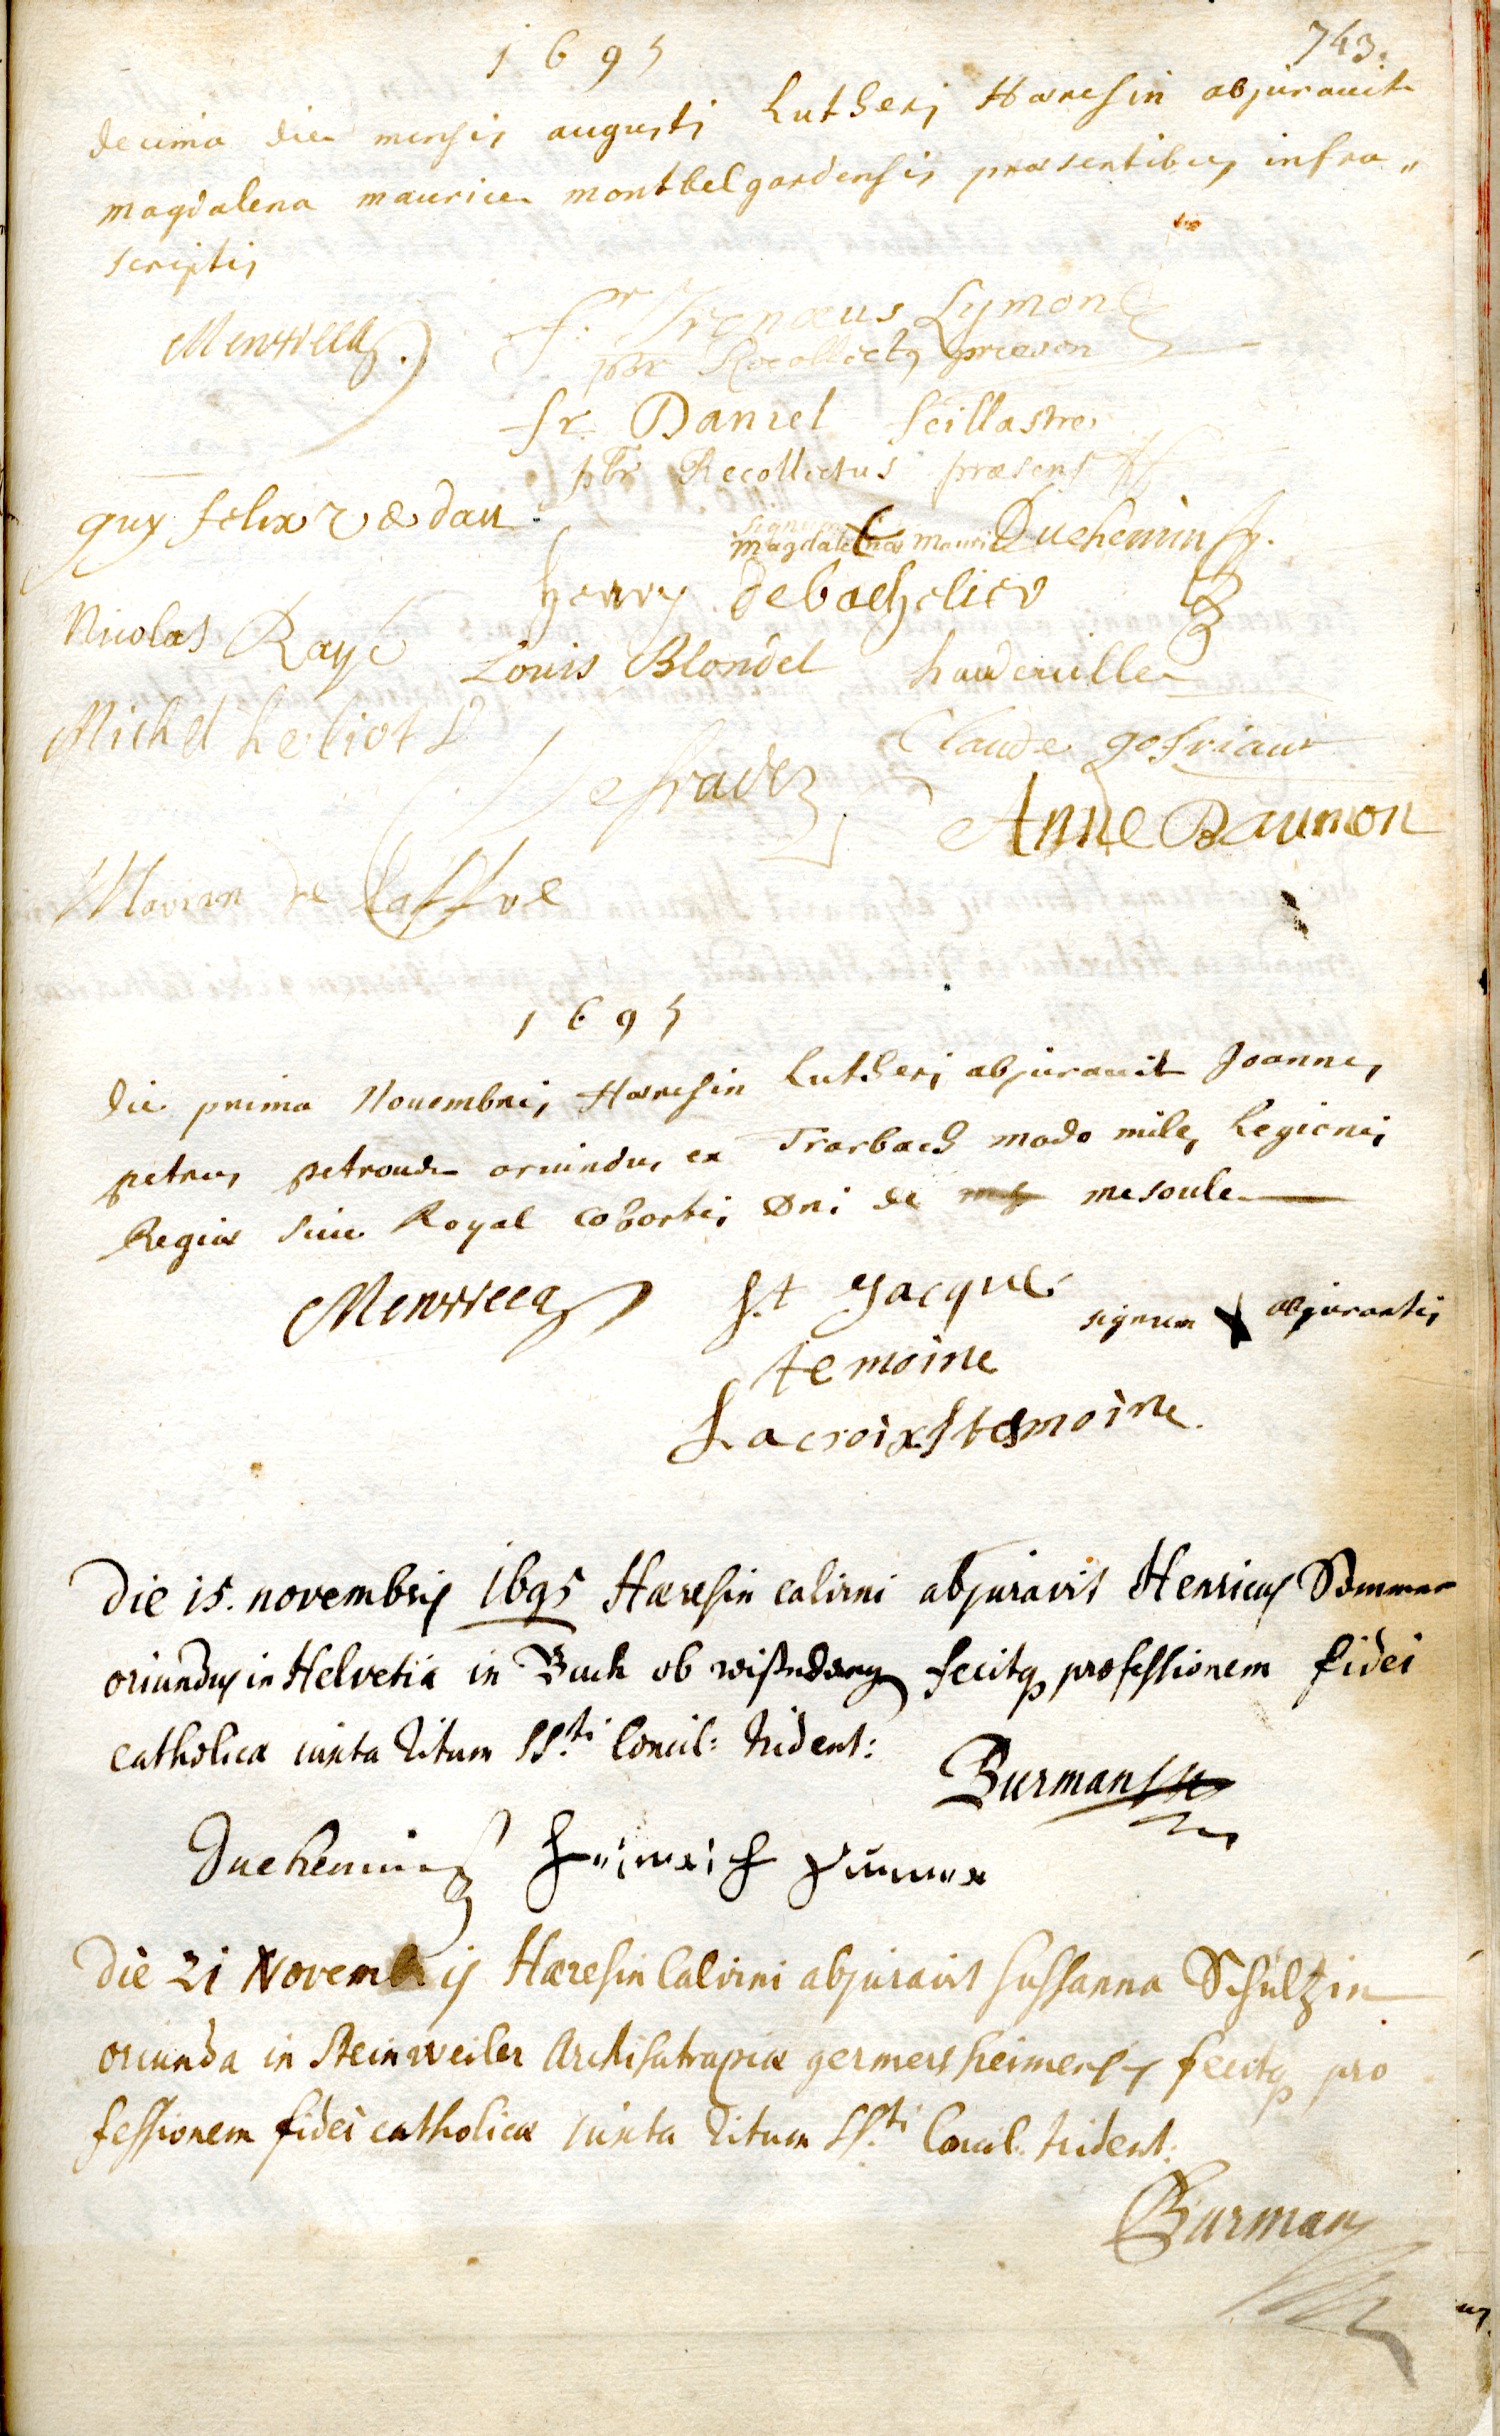 743.
1695
decima die mensis augusti Lutheri Hæresin abjurauit
magdalena maurice montbelgardensis præsentibus infra„
scriptis
fr. Irenæus Symon
pbr Recollectus præsens
fr. Daniel
pbr Recollectus præsens
guy felix
signum
magdalenæ Mauri Duchemin
henry debachelier
Nicolas Rayé
Louis Blondel haudeuille
Michel heliot
Claude
Anne Baumon
de
1695
die prima Nouembris Hæresin Lutheri abjurauit Joannes
petrus petroude oriundus ex Trarbach modo miles Legionis
Regiæ siue Royal cohortis Dni de mesoule
st Jacque
signum abjurantis
temoine
Lacroix temoine
Die 15. novembris 1695 Hæresin calvini abjuravit Henricus Sommer
oriundus in Helvetia in Buch ob fecitq professionem fidei
catholicæ iuxta ritum SS.ti Concil: trident:
Burman
Duchemin Heinrich
Die 21 Novembris Hæresin Calvini abjuravit Sussanna Schultzin
oriunda in Steinweiler Archisatrapiæ germersheimensis fecitq pro
fessionem fidei catholicæ iuxta ritum SS.ti Concil. trident:
Burman